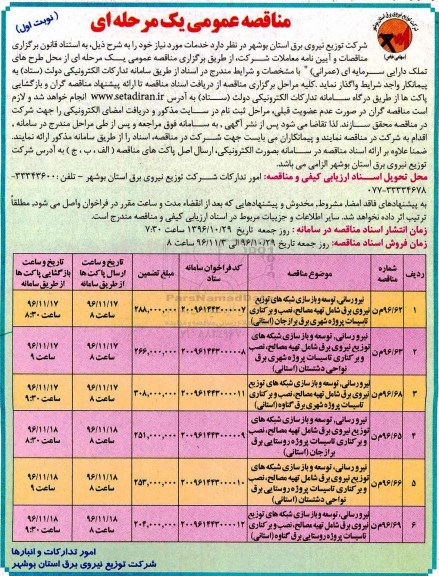 شرکت توزیع نیروی برق استان بوشهر
(سهامی خاص)
مناقصه عمومی یک مرحله ای
( نوبت اول)
شرکت توزیع نیروی برق استان بوشهر در نظر دارد خدمات مورد نیاز خود را به شرح ذیل، به استناد قانون برگزاری
مناقصات و آیین نامه معاملات شرکت، از طریق برگزاری مناقصه عمومی یک مرحله ای از محل طرح های
تملک دارایی سرمایه ای (عمرانی) " با مشخصات و شرایط مندرج در اسناد از طریق سامانه تدارکات الکترونیکی دولت (ستاد) به
پیمانکار واجد شرایط واگذار نماید .کلیه مراحل برگزاری مناقصه از دریافت اسناد مناقصه تا ارائه پیشنهاد مناقصه گران و بازگشایی
پاکت ها از طریق درگاه سامانه تدارکات الکترونیکی دولت (ستاد) به آدرس www.setadiran.ir انجام خواهد شد و لازم
است مناقصه گران در صورت عدم عضویت قبلی، مراحل ثبت نام در سایت مذکور و دریافت امضای الکترونیکی را جهت شرکت
در مناقصه محقق سازند. لذا تقاضا می شود پس از نشر آگهی ، به سامانه فوق مراجعه و پس از طی مراحل مندرج در سامانه ،
اقدام به شرکت در مناقصه نمایند و پیمانکاران می بایست جهت شرکت در مناقصه، اسناد را از طریق سامانه مذکور ارائه نمایند.
ضمنا علاوه بر ارائه اسناد مناقصه در سامانه بصورت الکترونیکی، ارسال اصل پاکت های مناقصه ( الف ، ب ، ج ) به آدرس شرکت
توزیع نیروی برق استان بوشهر الزامی می باشد.
محل تحویل اسناد ارزیابی کیفی و مناقصه: امور تدارکات شرکت توزیع نیروی برق استان بوشهر – تلفن: ۳۳۳۴۳۶۰۰-
۰۷۷-۳۳۳۳۴۶۷۸
به پیشنهادهای فاقد امضا، مشروط، مخدوش و پیشنهادهایی که بعد از انقضاء مدت و ساعت مقرر در فراخوان واصل می شود، مطلقا
ترتیب اثر داده نخواهد شد. سایر اطلاعات و جزییات مربوط در اسناد ارزیابی کیفی و مناقصه مندرج است.
زمان انتشار اسناد مناقصه در سامانه : روز جمعه تاریخ ۱۳۹۶/۱۰/۲۹ ساعت ۷:۳۰
زمان فروش اسناد مناقصه: روز جمعه تاریخ ۹۶/۱۰/۲۹ الی ۹۶/۱۱/۳ ساعت ۸
ردیف | شماره مناقصه | موضوع مناقصه | کد فراخوان سامانه ستاد | مبلغ تضمین | تاریخ و ساعت ارسال پاکت ها از طریق سامانه | تاریخ و ساعت بازگشایی پاکت ها از طریق سامانه
۱ | ۹۶/۶۲م ن | نیرو رسانی، توسعه و باز سازی شبکه های توزیع نیروی برق شامل تهیه مصالح، نصب و برکناری تاسیسات پروژه شهری برق برازجان (استانی) | ۲۰۰۹۶۱۴۴۳۰۰۰۰۰۷ | ۲۸۸,۰۰۰,۰۰۰ | ۹۶/۱۱/۱۷ ساعت ۸ | ۹۶/۱۱/۱۷ ساعت ۸:۳۰
۲ | ۹۶/۶۳م ن | نیرو رسانی، توسعه و باز سازی شبکه های توزیع نیروی برق شامل تهیه مصالح، نصب و برکناری تاسیسات پروژه شهری برق نواحی دشتستان (استانی) | ۲۰۰۹۶۱۴۴۳۰۰۰۰۰۸ | ۲۶۶,۰۰۰,۰۰۰ | ۹۶/۱۱/۱۷ ساعت ۸ | ۹۶/۱۱/۱۷ ساعت ۹
۳ | ۹۶/۶۸م ن | نیرو رسانی، توسعه و باز سازی شبکه های توزیع نیروی برق شامل تهیه مصالح، نصب و برکناری تاسیسات پروژه شهری برق گناوه (استانی) | ۲۰۰۹۶۱۴۴۳۰۰۰۰۱۱ | ۳۰۸,۰۰۰,۰۰۰ | ۹۶/۱۱/۱۷ ساعت ۸ | ۹۶/۱۱/۱۷ ساعت ۹:۳۰
۴ | ۹۶/۶۵م ن | نیرو رسانی، توسعه و باز سازی شبکه های توزیع نیروی برق شامل تهیه مصالح، نصب و برکناری تاسیسات پروژه روستایی برق برازجان (استانی) | ۲۰۰۹۶۱۴۴۳۰۰۰۰۰۹ | ۲۵۱,۰۰۰,۰۰۰ | ۹۶/۱۱/۱۸ ساعت ۸ | ۹۶/۱۱/۱۸ ساعت ۸:۳۰
۵ | ۹۶/۶۶م ن | نیرو رسانی، توسعه و باز سازی شبکه های توزیع نیروی برق شامل تهیه مصالح، نصب و برکناری تاسیسات پروژه روستایی برق نواحی دشتستان (استانی) | ۲۰۰۹۶۱۴۴۳۰۰۰۰۱۰ | ۲۵۳,۰۰۰,۰۰۰ | ۹۶/۱۱/۱۸ ساعت ۸ | ۹۶/۱۱/۱۸ ساعت ۹
۶ | ۹۶/۶۹م ن | نیرو رسانی، توسعه و باز سازی شبکه های توزیع نیروی برق شامل تهیه مصالح، نصب و برکناری تاسیسات پروژه روستایی برق گناوه (استانی) | ۲۰۰۹۶۱۴۴۳۰۰۰۰۱۲ | ۲۰۴,۰۰۰,۰۰۰ | ۹۶/۱۱/۱۸ ساعت ۸ | ۹۶/۱۱/۱۸ ساعت ۹:۳۰
امور تدارکات و انبارها
شرکت توزیع نیروی برق استان بوشهر